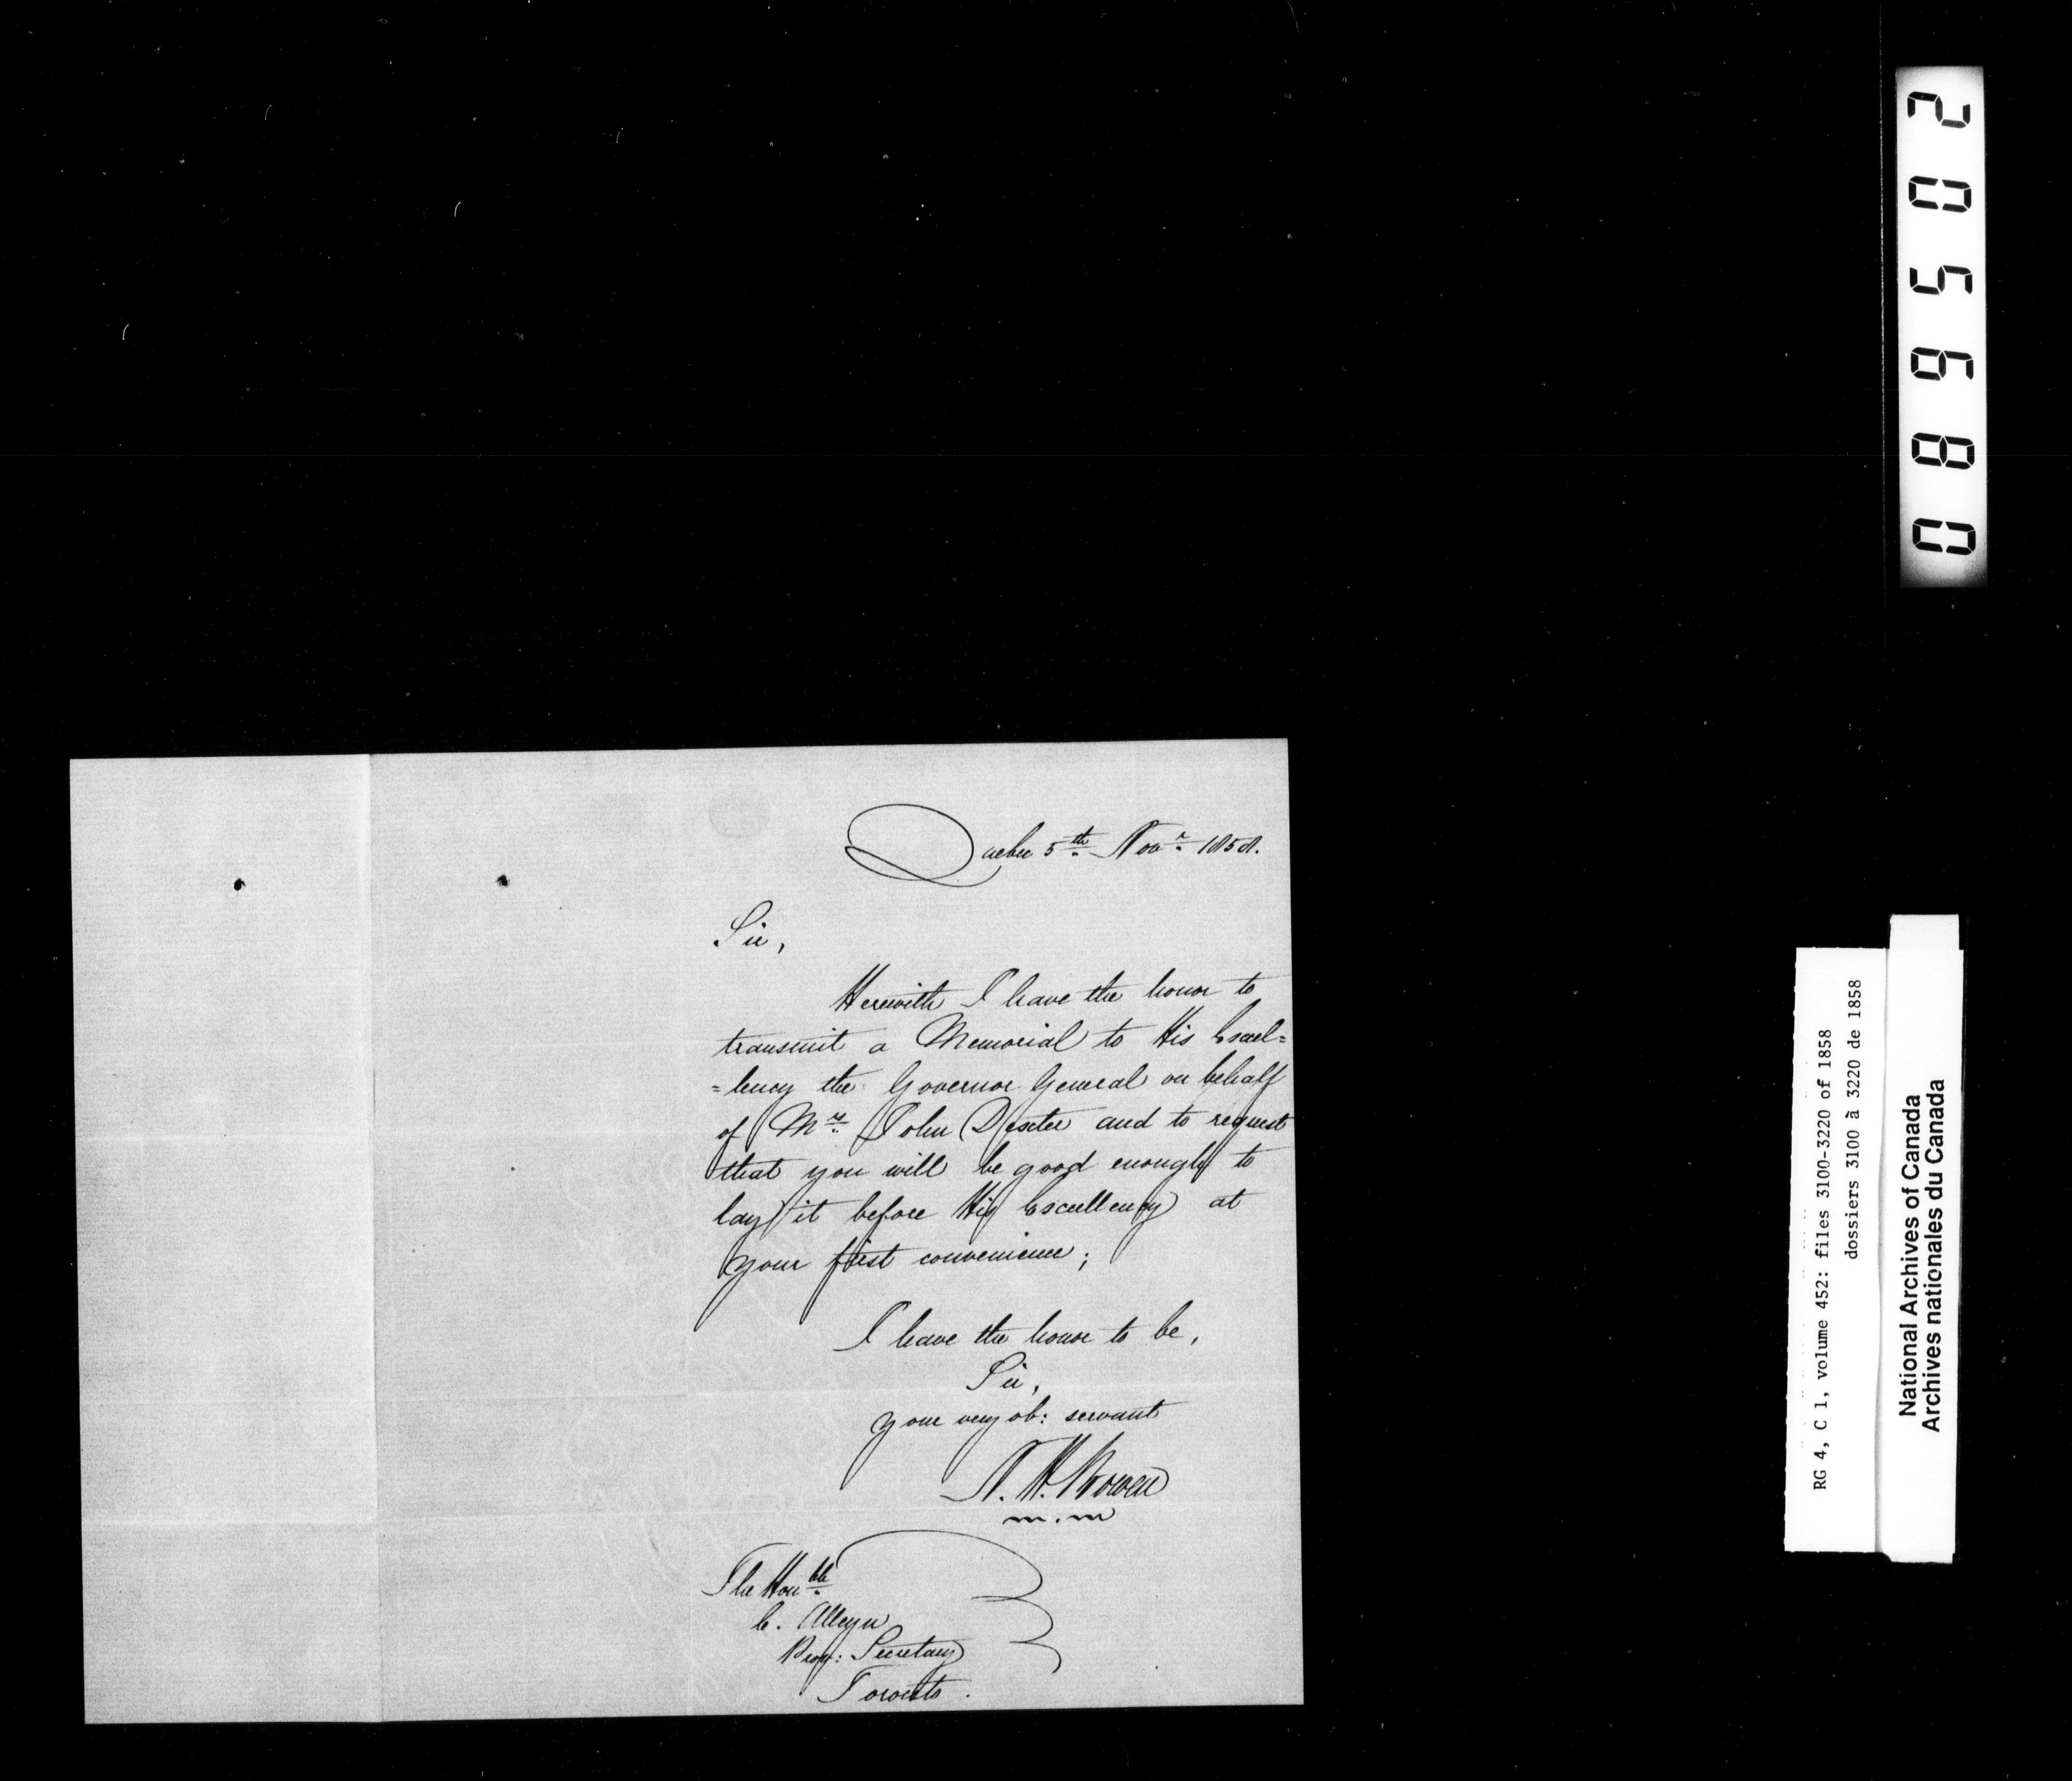 Quebec 5th Novr. 1858.
Sir,
Herewith I have the honor to
transmit a Memorial to His Excel=
=lency the Governor General on behalf
of Mr. John Dexter and to request
that you will be good enough to
lay it before His Excellency at
your first convenience;
I have the honor to be,
Sir,
Your very ob: servant
N. H. Bowen
The Honble.
C. Alleyn
Prov: Secretary
Toronto.
205680
RG 4, C 1, volume 452: files 3100-3220 of 1858
dossiers 3100 à 3220 de 1858
National Archives of Canada
Archives nationales du Canada